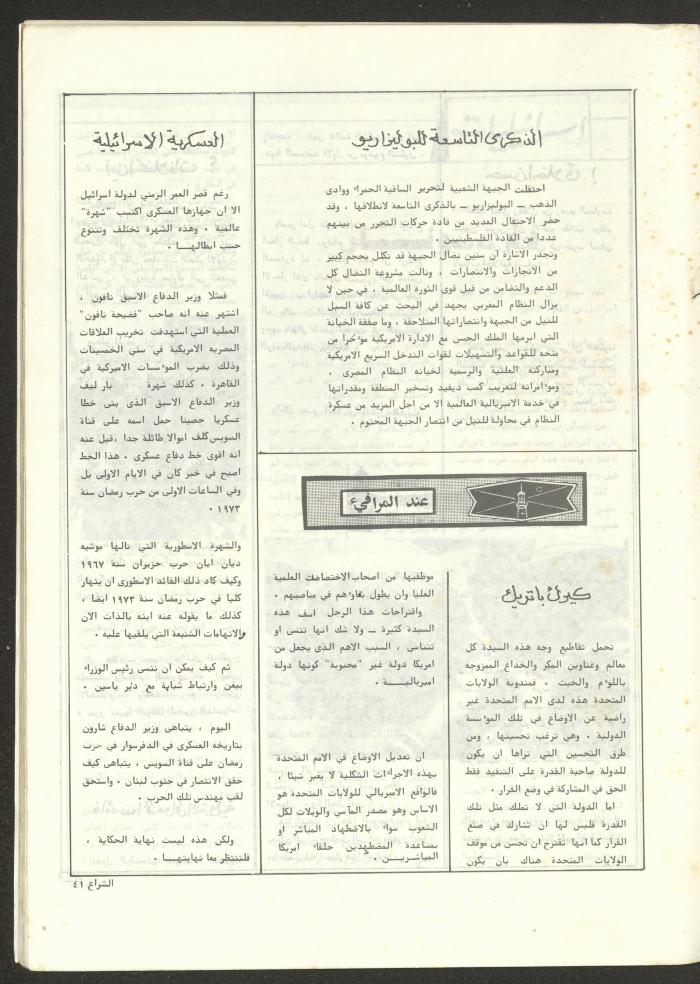 الذكرى التاسعة للبوليزاريو
احتفلت الجبهة الشعبية لتحرير الساقية الحمراء ووادى
الذهب ــ البوليزاريو ــ بالذكرى التاسعة لانطلاقها ، وقد
حضر الاحتفال العديد من قادة حركات التحرر من بينهم
عددا من القادة الفلسطينيين .
وتجدر الاشارة ان سنين نضال الجبهة قد تكلل بحجم كبير
من الانجازات والانتصارات ، ونالت مشروعة النضال كل
الدعم والتضامن من قبل قوى الثورة العالمية ، في حين لا
يزال النظام المغربي يجهد في البحث عن كافة السبل
للنيل من الجبهة وانتصاراتها المتلاحقة ، وما صفقة الخيانة
التي ابرمها الملك الحسن مع الادارة الامريكية موءخرا من
منحه للقواعد والتسهيلات لقوات التدخل السريع الامريكية
ومباركته العلنية والرسمية لخيانه النظام المصرى ،
وموءامراته لتعريب كمب ديفيد وتسخير المنطقة ومقدراتها
في خدمة الامبريالية العالمية الا من اجل المزيد من عسكرة
النظام في محاولة للنيل من انتصار الجبهة المحتوم .
عند المرافيء
كيرك باتريك
تحمل تقاطيع وجه هذه السيدة كل
معالم وعناوين المكر والخداع الممزوجه
باللوءم والخبث . فمندوبة الولايات
المتحدة هذه لدى الامم المتحدة غير
راضية عن الاوضاع في تلك الموءسسة
الدولية . وهي ترغب تحسينها ، ومن
طرق التحسين التي تراها ان يكون
للدولة صاحبة القدرة على التنفيذ فقط
الحق في المشاركة في وضع القرار .
اما الدولة التي لا تملك مثل تلك
القدرة فليس لها ان تشارك في صنع
القرار كما انها تقترح ان تحسن من موقف
الولايات المتحدة هناك بان يكون
موظفيها من اصحاب الاختصاصات العلمية
العليا وان يطول بقاوءهم في مناصبهم .
واقتراحات هذا الرجل اسف هذه
السيدة كثيرة ــ ولا شك انها تنسى او
تتناسى ، السبب الاهم الذي يجعل من
امريكا دولة غير "محبوبة" كونها دولة
امبرياليـــــة .
ان تعديل الاوضاع في الامم المتحدة
بهذه الاجراءات الشكلية لا يغير شيئا ،
فالواقع الامبريالي للولايات المتحدة هو
الاساس وهو مصدر المآسي والويلات لكل
الشعوب سواء بالاضطهاد المباشر او
بمساعدة المضطهدين حلفاء امريكا
المباشريـــن .
العسكرية الاسرائيلية
رغم قصر العمر الزمني لدولة اسرائيل
الا ان جهازها العسكرى اكتسب "شهرة"
عالمية . وهذه الشهرة تختلف وتتنوع
حسب ابطالهـــا .
فمثلا وزير الدفاع الاسبق نافون ،
اشتهر عنه انه صاحب "فضيحة نافون"
العملية التي استهدفت تخريب العلاقات
المصريه الامريكية في سني الخمسينات
وذلك بضرب الموءسسات الاميركية في
القاهرة . كذلك شهرة : بار ليف
وزير الدفاع الاسبق الذى بنى خطا
عسكريا حصينا حمل اسمه على قناة
السويس كلف اموالا طائلة جدا ، قيل عنه
انه اقوى خط دفاع عسكرى . هذا الخط
اصبح في خبر كان في الايام الاولى بل
وفي الساعات الاولى من حرب رمضان سنة
١٩٧٣ .
والشهرة الاسطورية التي نالها موشيه
ديان ابان حرب حزيران سنة ١٩٦٧
وكيف كاد ذلك القائد الاسطورى ان ينهار
كليا في حرب رمضان سنة ١٩٧٣ ايضا ،
كذلك ما يقوله عنه ابنه بالذات الان
والاتهامات الشنيعة التي يلقيها عليه .
ثم كيف يمكن ان ننسى رئيس الوزراء
بيغن وارتباط شبابه مع دير ياسين .
اليوم ، يتباهى وزير الدفاع شارون
بتاريخه العسكرى في الدفرسوار في حرب
رمضان على قناة السويس ، يتباهى كيف
حقق الانتصار في جنوب لبنان . واستحق
لقب مهندس تلك الحرب .
ولكن هذه ليست نهاية الحكاية ،
فلننتظر معا نهايتهـــا .
الشراع ٤١